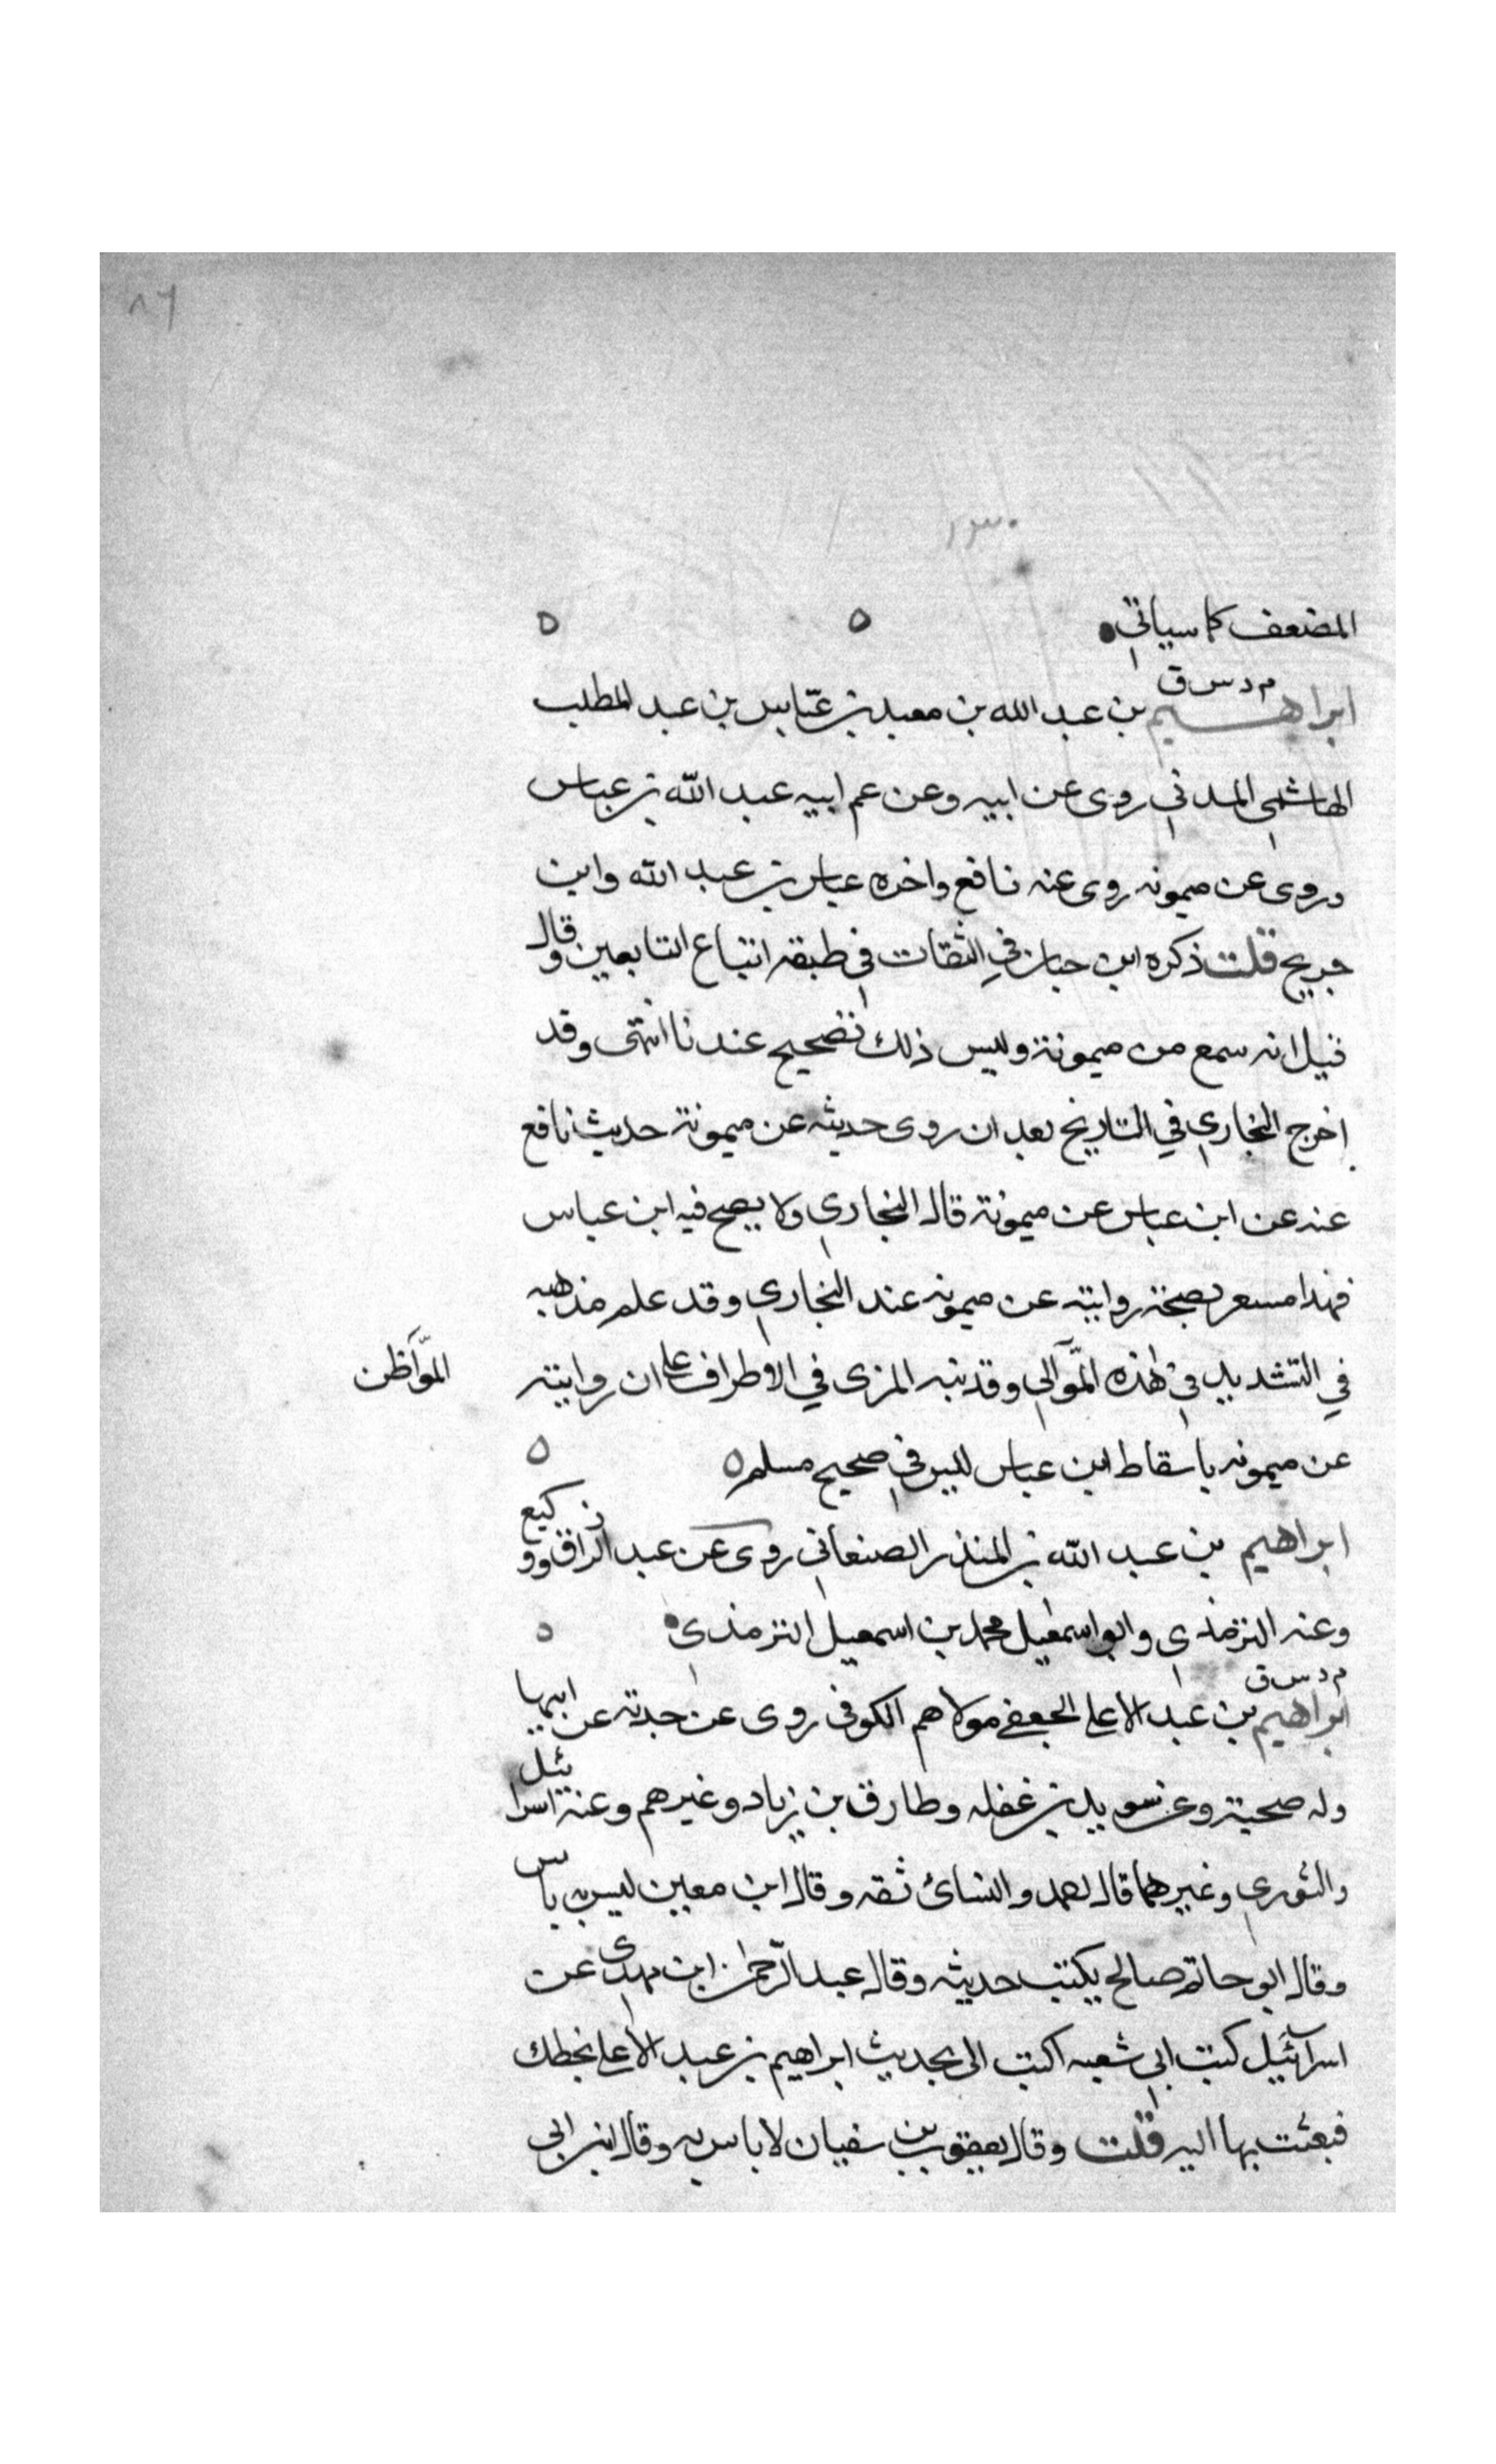 ٨٦
١٣٠
المضعف كما سياتي
م د س ق
ابراهيم بن عبد الله بن معبد بن عبّاس بن عبد المطلب
الهاشمي المدني روى عن ابيه وعن عم ابيه عبد الله بن عباس
وروى عن ميمونه روى عنه نافع واخوه عباس بن عبد الله وابن
جريج قلت ذكره ابن حبان في الثقات في طبقه اتباع التابعين وقال
قيل انه سمع من ميمونة وليس ذلك بصحيح عندنا انتهى وقد
اخرج البخاري في التاريخ بعد ان روى حديثه عن ميمونة حديث نافع
عنه عن ابن عباس عن ميمونة قال البخاري ولا يصح فيه ابن عباس
فهذا مسعر بصحة روايته عن ميمونه عند البخاري وقد علم مذهبه
في التشديد في هذه الموّالي وقد نبه المزى في الاطراف على ان روايته
المّواظن
عن ميمونه باسقاط ابن عباس ليس في صحيح مسلم
ابراهيم بن عبد الله بن المنذر الصنعاني روى عن عبد الرزاق ووكيع
وعنه الترمذي وابو اسمعيل محمد بن اسمعيل الترمذي
م د س ق
ابراهيم بن عبد الاعلى الجعفي مولاهم الكوفى روى عن جدته عن ابيها
وله صحبة وعن سويد بن غفله وطارق بن زياد وغيرهم وعنه اسرائيل
والثوري وغيرهما قال احمد والنسائ ثقه وقال ابن معين ليس به باس
وقال ابو حاتم صالح يكتب حديثه وقال عبد الرّحمن ابن مهدى عن
اسرآئيل كتب الي شعبه اكتب الى بحديث ابراهيم بن عبد الاعلى بخطك
فبعثت بها اليه قلت وقال يعقوب بن سفيان لا باس به وقال ابن ابي